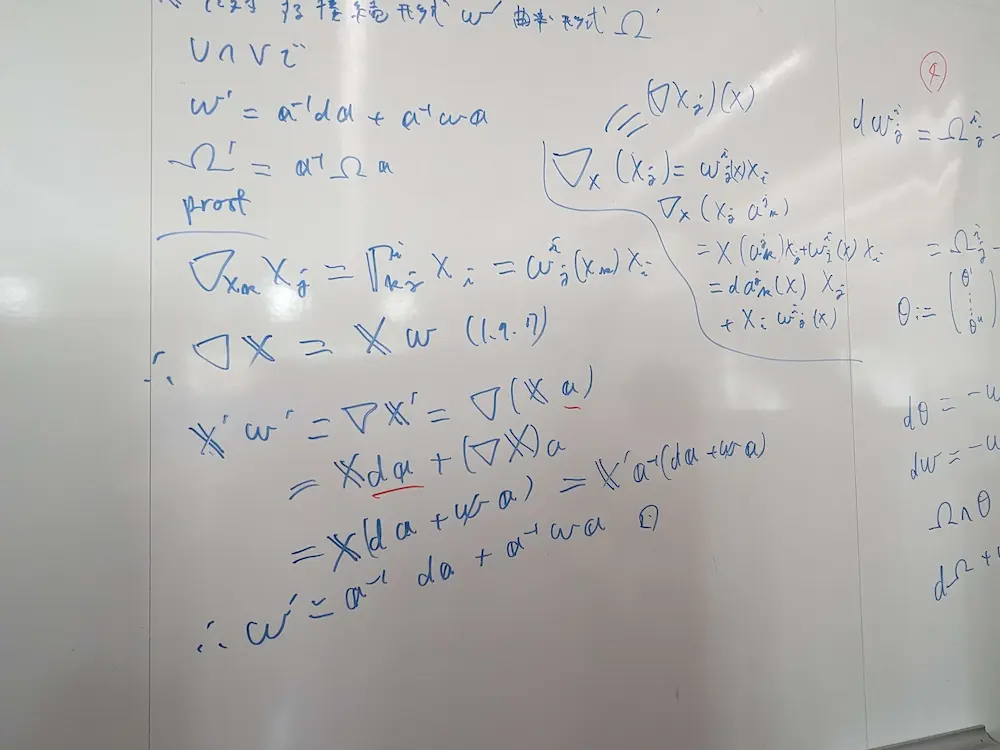 接続形式 ω' 曲率形式 Ω'
U∩Vで
ω' = a⁻¹da + a⁻¹ωa
Ω' = a⁻¹Ωa
proof
∇_{X_k} X_j = Γ^i_{kj} X_i = ω^i_j(X_k) X_i
∴ ∇X = Xω (1.9.7)
X'ω' = ∇X' = ∇(Xa)
= Xda + (∇X)a
= X(da + ωa) = X'a⁻¹(da + ωa)
∴ ω' = a⁻¹da + a⁻¹ωa
(∇X_j)(X)
∇_X (X_j) = ω^i_j(X)X_i
∇_X (X_j a^j_k)
= X(a^j_k)X_j + ω^i_j(X) X_i
= da^j_k(X) X_j
+ X_i ω^i_j(X)
④
dω^i_j = Ω^i_j -
= Ω^i_j -
θ := (θ¹ ⋮ θⁿ)
dθ = -ω
dω = -ω
Ω∧θ
dΩ +